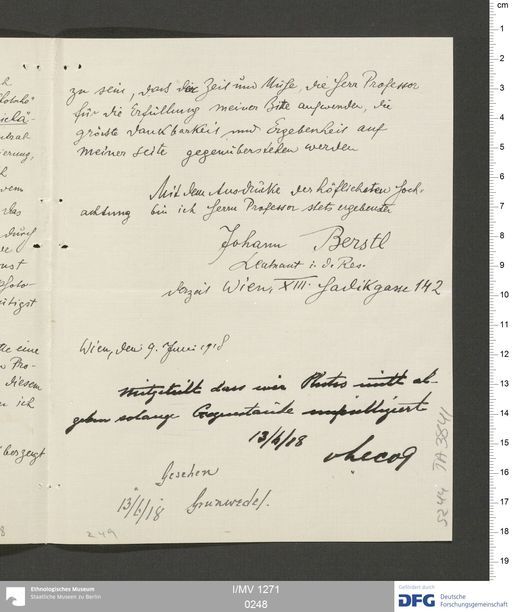 zu sein, dass die Zeit und Mühe, die Herr Professor
für die Erfüllung meiner Bitte aufwenden, die
grösste Dankbarkeit und Ergebenheit auf
meiner Seite gegenüberstehen werden
Mit dem Ausdrucke der höflichsten Hoch-
achtung bin ich Herrn Professor stets ergebenster
Johann Berstl
Leutnant i. d. Res.
derzeit Wien, XIII. Hadikgasse 142
Wien, den 9. Juni 1918
mitgeteilt dass wir Photos nicht ab-
geben solange Gegenstände unpubliziert
13/6/18
vLecoq
Gesehen
13/6/18 Grünwedel.
5244 IA 3841
249
I/MV 1271
0248
Ethnologisches Museum
Staatliche Museen zu Berlin
Gefördert durch
DFG Deutsche
Forschungsgemeinschaft
cm
1
2
3
4
5
6
7
8
9
10
11
12
13
14
15
16
17
18
19